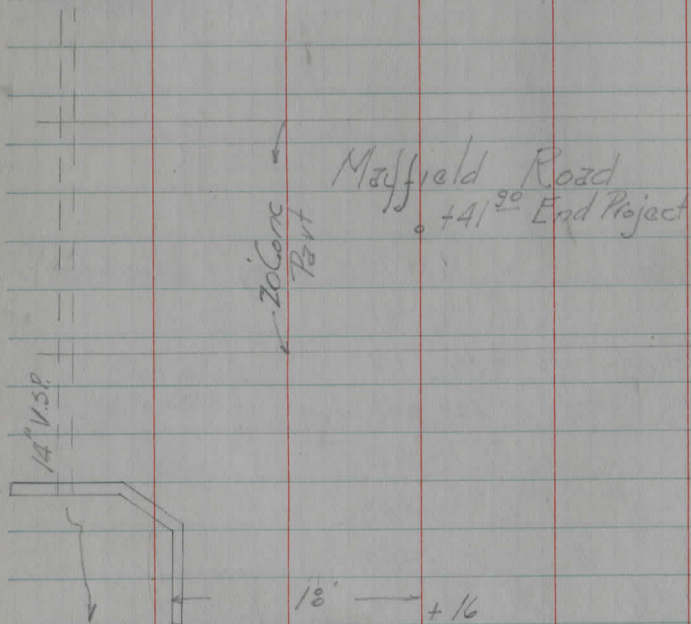 Mayfield Road
+41 90 End Project
20' Conc
Pavt
14" V.S.P.
18'
+16